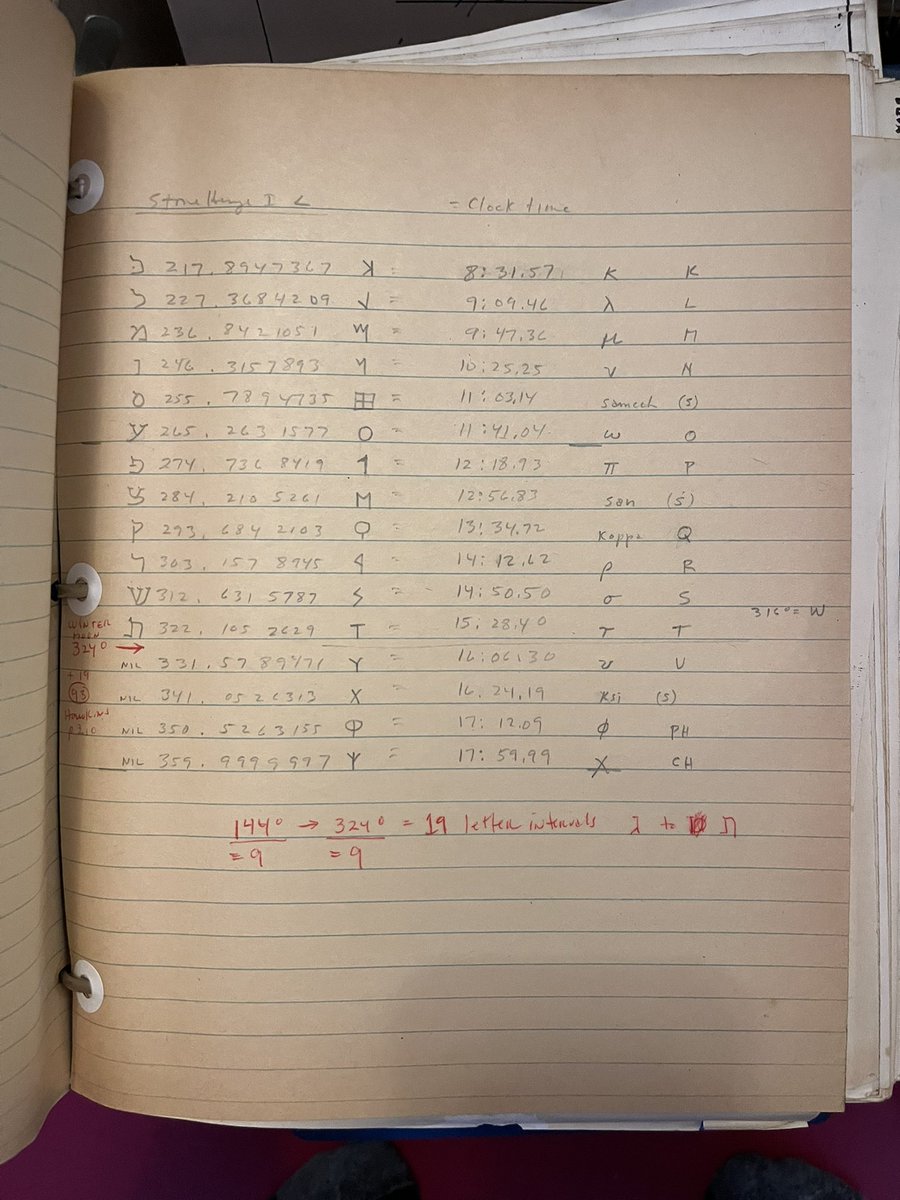 Stonehenge I <
= Clock time
כ 217.8947367 𐤊 = 8:31.57 K K
ל 227.3684209 = 9:09.46 λ L
מ 236.8421051 = 9:47.36 μ M
נ 246.3157893 = 10:25.25 ν N
ס 255.7894735 田 = 11:03.14 Samech (s)
ע 265.2631577 O = 11:41.04 ω O
פ 274.7368419 = 12:18.93 π P
צ 284.2105261 M = 12:56.83 San (ś)
ק 293.6842103 Ϙ = 13:34.72 Koppa Q
ר 303.1578945 = 14:12.62 ρ R
ש 312.6315787 = 14:50.50 σ S
316° = W
ת 322.1052629 T = 15:28.40 τ T
WINTER
MOON
324° →
NIL 331.5789471 Y = 16:06.30 υ U
+19
(93)
NIL 341.0526313 X = 16.24,19 Ksi (s)
Hawkins
p210
NIL 350.5263155 Φ = 17:12.09 φ PH
NIL 359.9999997 = 17:59.99 X CH
144° → 324° = 19 letter intervals λ to ת
= 9 = 9